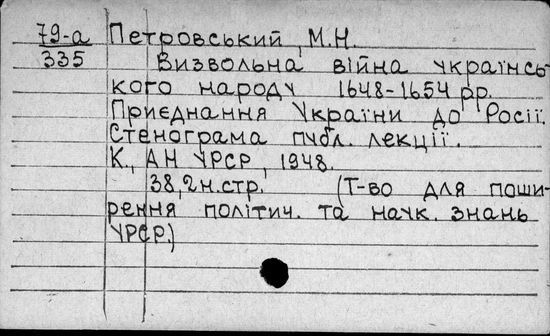 79-а Петровський, М.Н.
335 Визвольна війна українсь-
кого народу 1648-1654 рр.
Приєднання України до Росії.
Стенограма публ. лекції.
К., АН УРСР, 1948.
38,2н.стр. (Т-во для поши-
рення політич. та наук. знань
УРСР.)